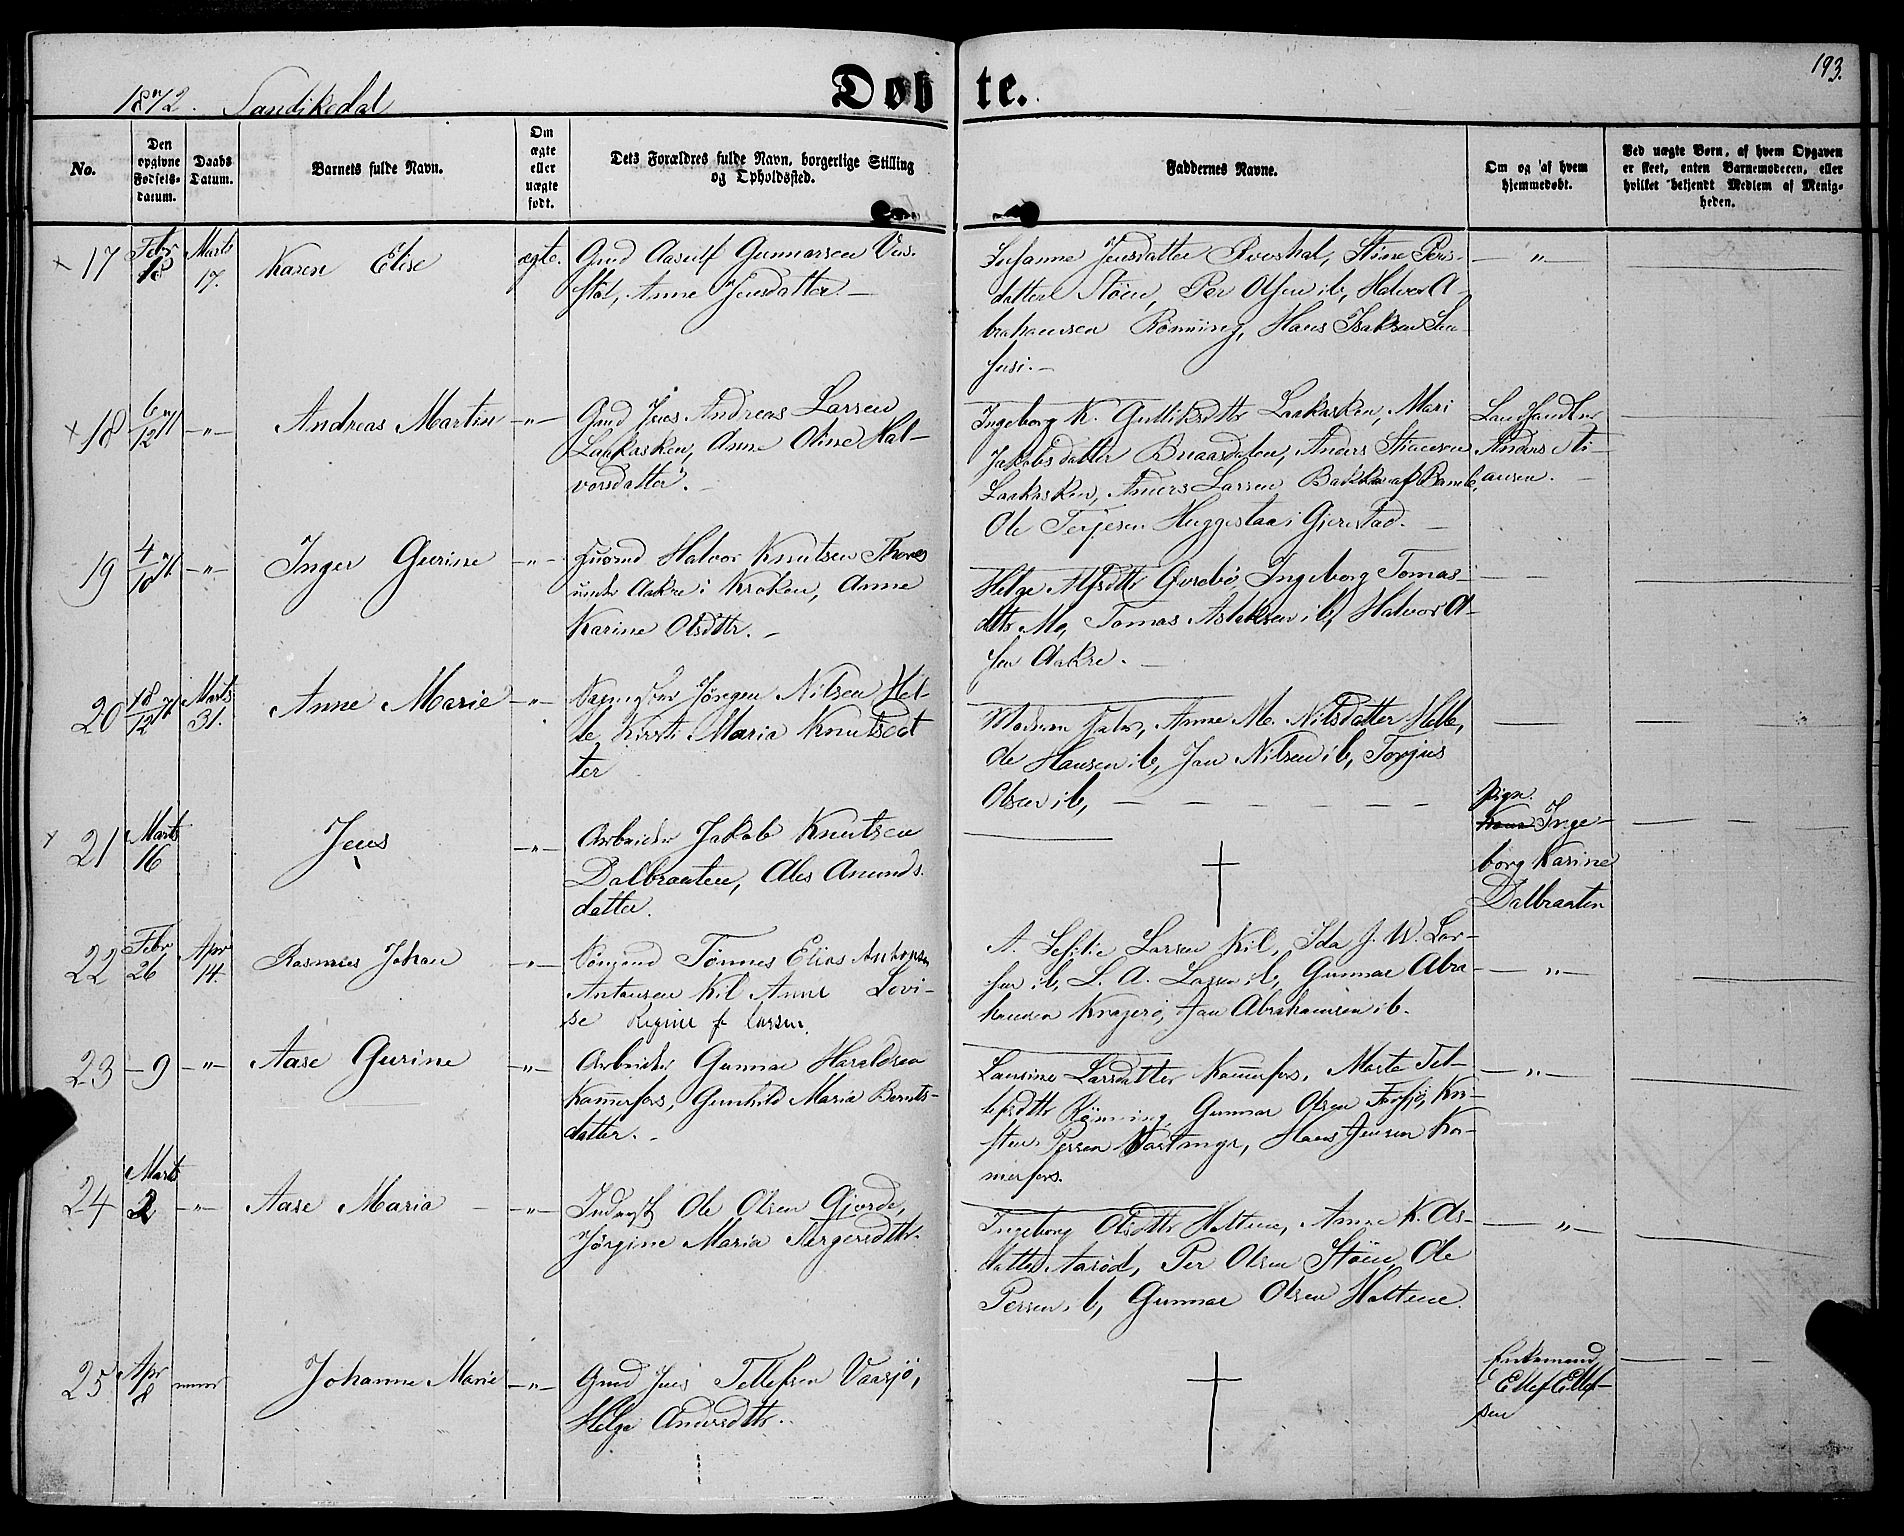 193.
1872. Sandikedal
Døbte.
No.
Den opgivne Fødselsdatum.
Daabs Datum.
Barnets fulde Navn.
Om ægte eller uægte født.
Dets Forældres fulde Navn, borgerlige Stilling og Opholdssted.
Faddernes Navne.
Om og af hvem hjemmedøbt.
Ved uægte Børn, af hvem Opgaven er skeet, enten Barnemoderen, eller hvilket bekjendt Medlem af Menigheden.
x 17 Febr 18 Marts 17. Karen Elise ægte. Gmd Aasulf Gunnarsen
støl, Anne Jensdatter.
Susanne Jensdatter Stine Pers-
datter Støen, Per Olsen ib, Halvor A-
brahamsen Rønning, Hans Isaksen
x 18 6/12 71 -"- Andreas Martin -"- Gmd Jens Andreas Larsen
Laukasken, Anne Oline Hal-
vorsdatter.
Ingeborg K. Gulliksdtr Laakasken, Mari
Jakobsdatter Anders Stiansen
Laakasken, Anders Larsen Bakka af Bamle,
Ole Terjesen Huggestaa i Gjerestad.
Landhandler
Anders Sti-
ansen.
19 4/10 71. -"- Inger Gurine -"- Halvor Knutsen Thones
under Aakre i Kroken, Anne
Karine Olsdtr.
Helge Alfsdtr Øvrebø, Ingeborg Tomas-
dtr Mo, Tomas Aslaksen ib, Halvor
Aakre.
20 18/12 71. Marts 31. Anne Marie -"- Jørgen Nilsen Hel-
le, Kirsti Maria Knutsdat
ter
Moderen selv, Anne M. Nilsdatter Helle,
Ole Hansen ib, Jan Nilsen ib, Torjus
Olsen ib,
x 21 Marts 16 Jens -"- Arbeider Jakob Knutsen
Dalbraaten, Ales Amunds-
datter.
Pige
Inge-
borg Karine
Dalbraaten
22 Febr 26 Apr 14. Rasmus Johan -"- Sømand Tønnes Elias Antonsen
Antonsen Kil Anne Lovi-
se Regine f. Larsen.
A. Larsen Kil, Ida J. W. Lar-
sen ib, L. A. Larsen ib, Gunnar Abra
hamsen Kragerø, Jan Abrahamsen ib.
-"-
23 - 9 -"- Aase Gurine -"- Arbeider Gunnar Haraldsen
Kammerfos, Gunhild Maria Bernts-
datter.
Laurine Larsdatter Kammerfos, Marte Tel-
lefsdtr Rønning, Gunnar Olsen Kri-
sten Persen Hans Jensen Ka-
merfos.
-"-
24 Marts 2 -"- Aase Maria -"- Inderst Ole Olsen Gjerde,
Jørgine Maria
Ingeborg Olsdtr Holtene, Anne K. Ols-
datter Aarød, Per Olsen Støen, Ole
Persen ib, Gunnar Olsen Holtene.
-"-
25 Apr 8 Johanne Marie -"- Gmd Jens Tellefsen Vaasjø,
Helge Andersdtr.
Enkemand
Ellef Ellef-
sen